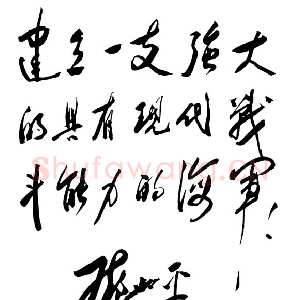 建立一支强大
的具有现代战
斗能力的海军!
Shufawang.cn
邓小平